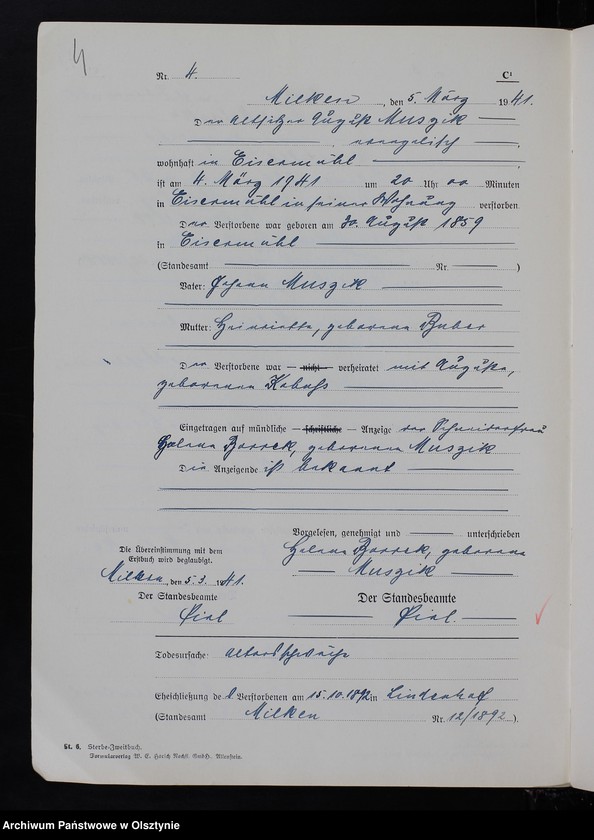 4
Nr. 4. C¹
Milken, den 5. März 1941.
Der Altsitzer August Muszik
evangelisch,
wohnhaft in Eisermühl
ist am 4. März 1941 um 20 Uhr 00 Minuten
in Eisermühl in seiner Wohnung verstorben.
Der Verstorbene war geboren am 30. August 1859
in Eisermühl
(Standesamt Nr. )
Vater: Johann Muszik
Mutter: Henriette, geborene Buber
Der Verstorbene war — nicht — verheiratet mit Auguste,
geborenen Kobuss
Eingetragen auf mündliche — schriftliche — Anzeige der Schneiderfrau
Helene Borrek, geborene Muszik
Die Anzeigende ist bekannt
Vorgelesen, genehmigt und unterschrieben
Helene Borrek, geborene
Muszik
Die Übereinstimmung mit dem
Erstbuch wird beglaubigt.
Milken, den 5.3.1941.
Der Standesbeamte
Der Standesbeamte
Todesursache: Altersschwäche
Eheschließung des Verstorbenen am 15.10.1892 in Lindenhof
(Standesamt Milken Nr. 12/1892.)
St. 6. Sterbe-Zweitbuch.
Formularverlag W. E. Harich Nachf. GmbH., Allenstein.
Archiwum Państwowe w Olsztynie